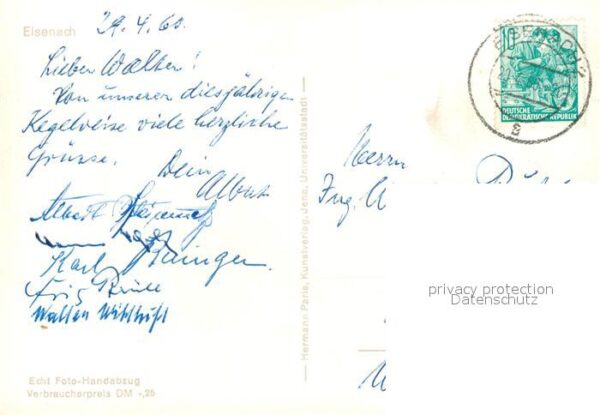 Eisenach
29.4.60.
Lieber Walter!
Von unseren diesjährigen
Kegelreise viele herzliche
Grüsse. Dein
Albert
Albert
Karl
Fritz
Walter
Echt Foto-Handabzug
Verbraucherpreis DM -,25
Hermann Paris, Kunstverlag, Jena, Universitätsstadt
EISENACH
10
DEUTSCHE
DEMOKRATISCHE REPUBLIK
Herrn
Ing.
privacy protection
Datenschutz